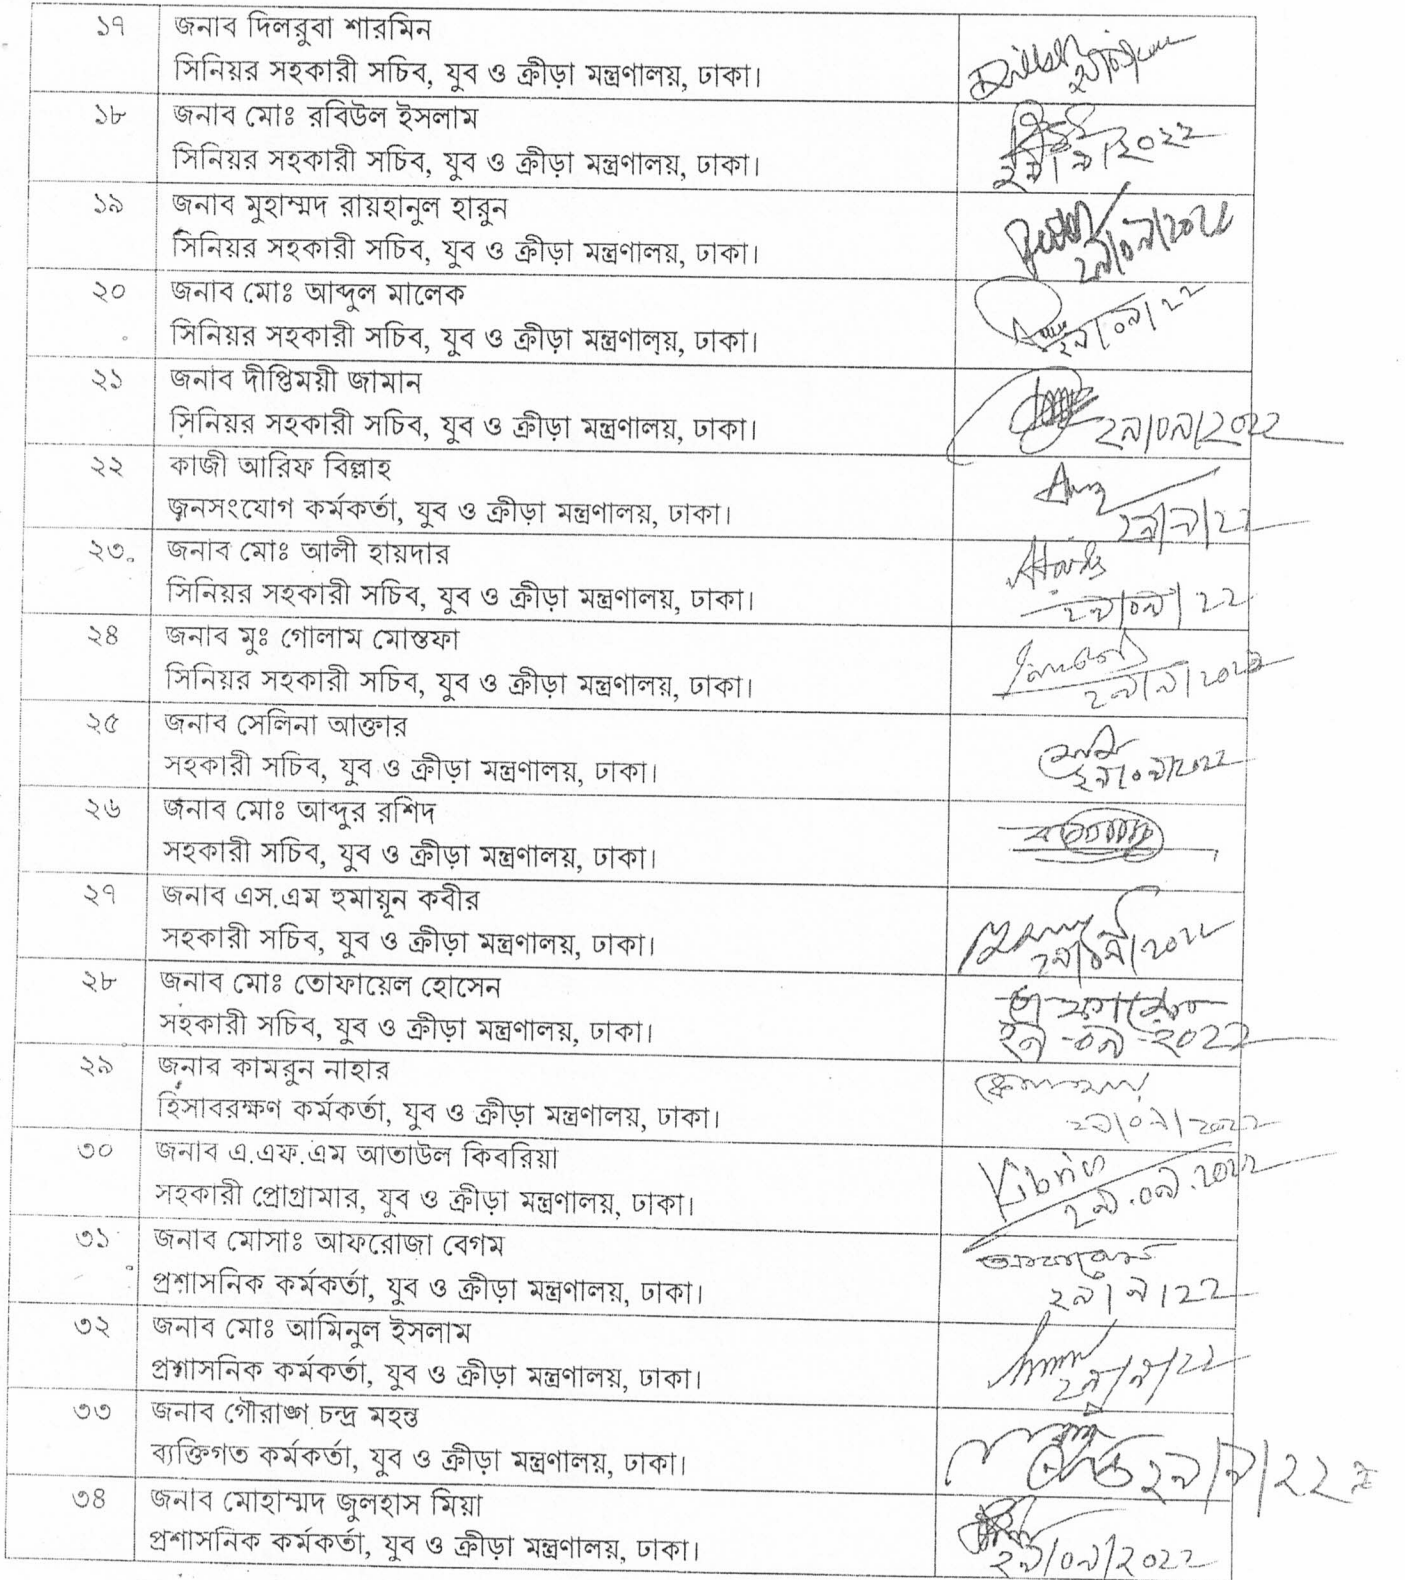 ১৭ জনাব দিলরুবা শারমিন
সিনিয়র সহকারী সচিব, যুব ও ক্রীড়া মন্ত্রণালয়, ঢাকা।
১৮ জনাব মোঃ রবিউল ইসলাম
সিনিয়র সহকারী সচিব, যুব ও ক্রীড়া মন্ত্রণালয়, ঢাকা।
২৯/৯/২০২২
১৯ জনাব মুহাম্মদ রায়হানুল হারুন
সিনিয়র সহকারী সচিব, যুব ও ক্রীড়া মন্ত্রণালয়, ঢাকা।
২৯/০৯/২০২২
২০ জনাব মোঃ আব্দুল মালেক
সিনিয়র সহকারী সচিব, যুব ও ক্রীড়া মন্ত্রণালয়, ঢাকা।
২৯/০৯/২২
২১ জনাব দীপ্তিময়ী জামান
সিনিয়র সহকারী সচিব, যুব ও ক্রীড়া মন্ত্রণালয়, ঢাকা।
২৯/০৯/২০২২
২২ কাজী আরিফ বিল্লাহ
জনসংযোগ কর্মকর্তা, যুব ও ক্রীড়া মন্ত্রণালয়, ঢাকা।
২৯/৯/২২
২৩ জনাব মোঃ আলী হায়দার
সিনিয়র সহকারী সচিব, যুব ও ক্রীড়া মন্ত্রণালয়, ঢাকা।
২৯/০৯/২২
২৪ জনাব মুঃ গোলাম মোস্তফা
সিনিয়র সহকারী সচিব, যুব ও ক্রীড়া মন্ত্রণালয়, ঢাকা।
২৯/৯/২০২২
২৫ জনাব সেলিনা আক্তার
সহকারী সচিব, যুব ও ক্রীড়া মন্ত্রণালয়, ঢাকা।
২৯/০৯/২০২২
২৬ জনাব মোঃ আব্দুর রশিদ
সহকারী সচিব, যুব ও ক্রীড়া মন্ত্রণালয়, ঢাকা।
২৭ জনাব এস.এম হুমায়ূন কবীর
সহকারী সচিব, যুব ও ক্রীড়া মন্ত্রণালয়, ঢাকা।
২৯/০৯/২০২২
২৮ জনাব মোঃ তোফায়েল হোসেন
সহকারী সচিব, যুব ও ক্রীড়া মন্ত্রণালয়, ঢাকা।
২৯-০৯-২০২২
২৯ জনাব কামরুন নাহার
হিসাবরক্ষণ কর্মকর্তা, যুব ও ক্রীড়া মন্ত্রণালয়, ঢাকা।
২৯/০৯/২০২২
৩০ জনাব এ.এফ.এম আতাউল কিবরিয়া
Kibria
সহকারী প্রোগ্রামার, যুব ও ক্রীড়া মন্ত্রণালয়, ঢাকা।
২৯.০৯.২০২২
৩১ জনাব মোসাঃ আফরোজা বেগম
প্রশাসনিক কর্মকর্তা, যুব ও ক্রীড়া মন্ত্রণালয়, ঢাকা।
২৯/৯/২২
৩২ জনাব মোঃ আমিনুল ইসলাম
প্রশাসনিক কর্মকর্তা, যুব ও ক্রীড়া মন্ত্রণালয়, ঢাকা।
২৯/৯/২২
৩৩ জনাব গৌরাঙ্গ চন্দ্র মহন্ত
ব্যক্তিগত কর্মকর্তা, যুব ও ক্রীড়া মন্ত্রণালয়, ঢাকা।
২৯/৯/২২
৩৪ জনাব মোহাম্মদ জুলহাস মিয়া
প্রশাসনিক কর্মকর্তা, যুব ও ক্রীড়া মন্ত্রণালয়, ঢাকা।
২৯/০৯/২০২২